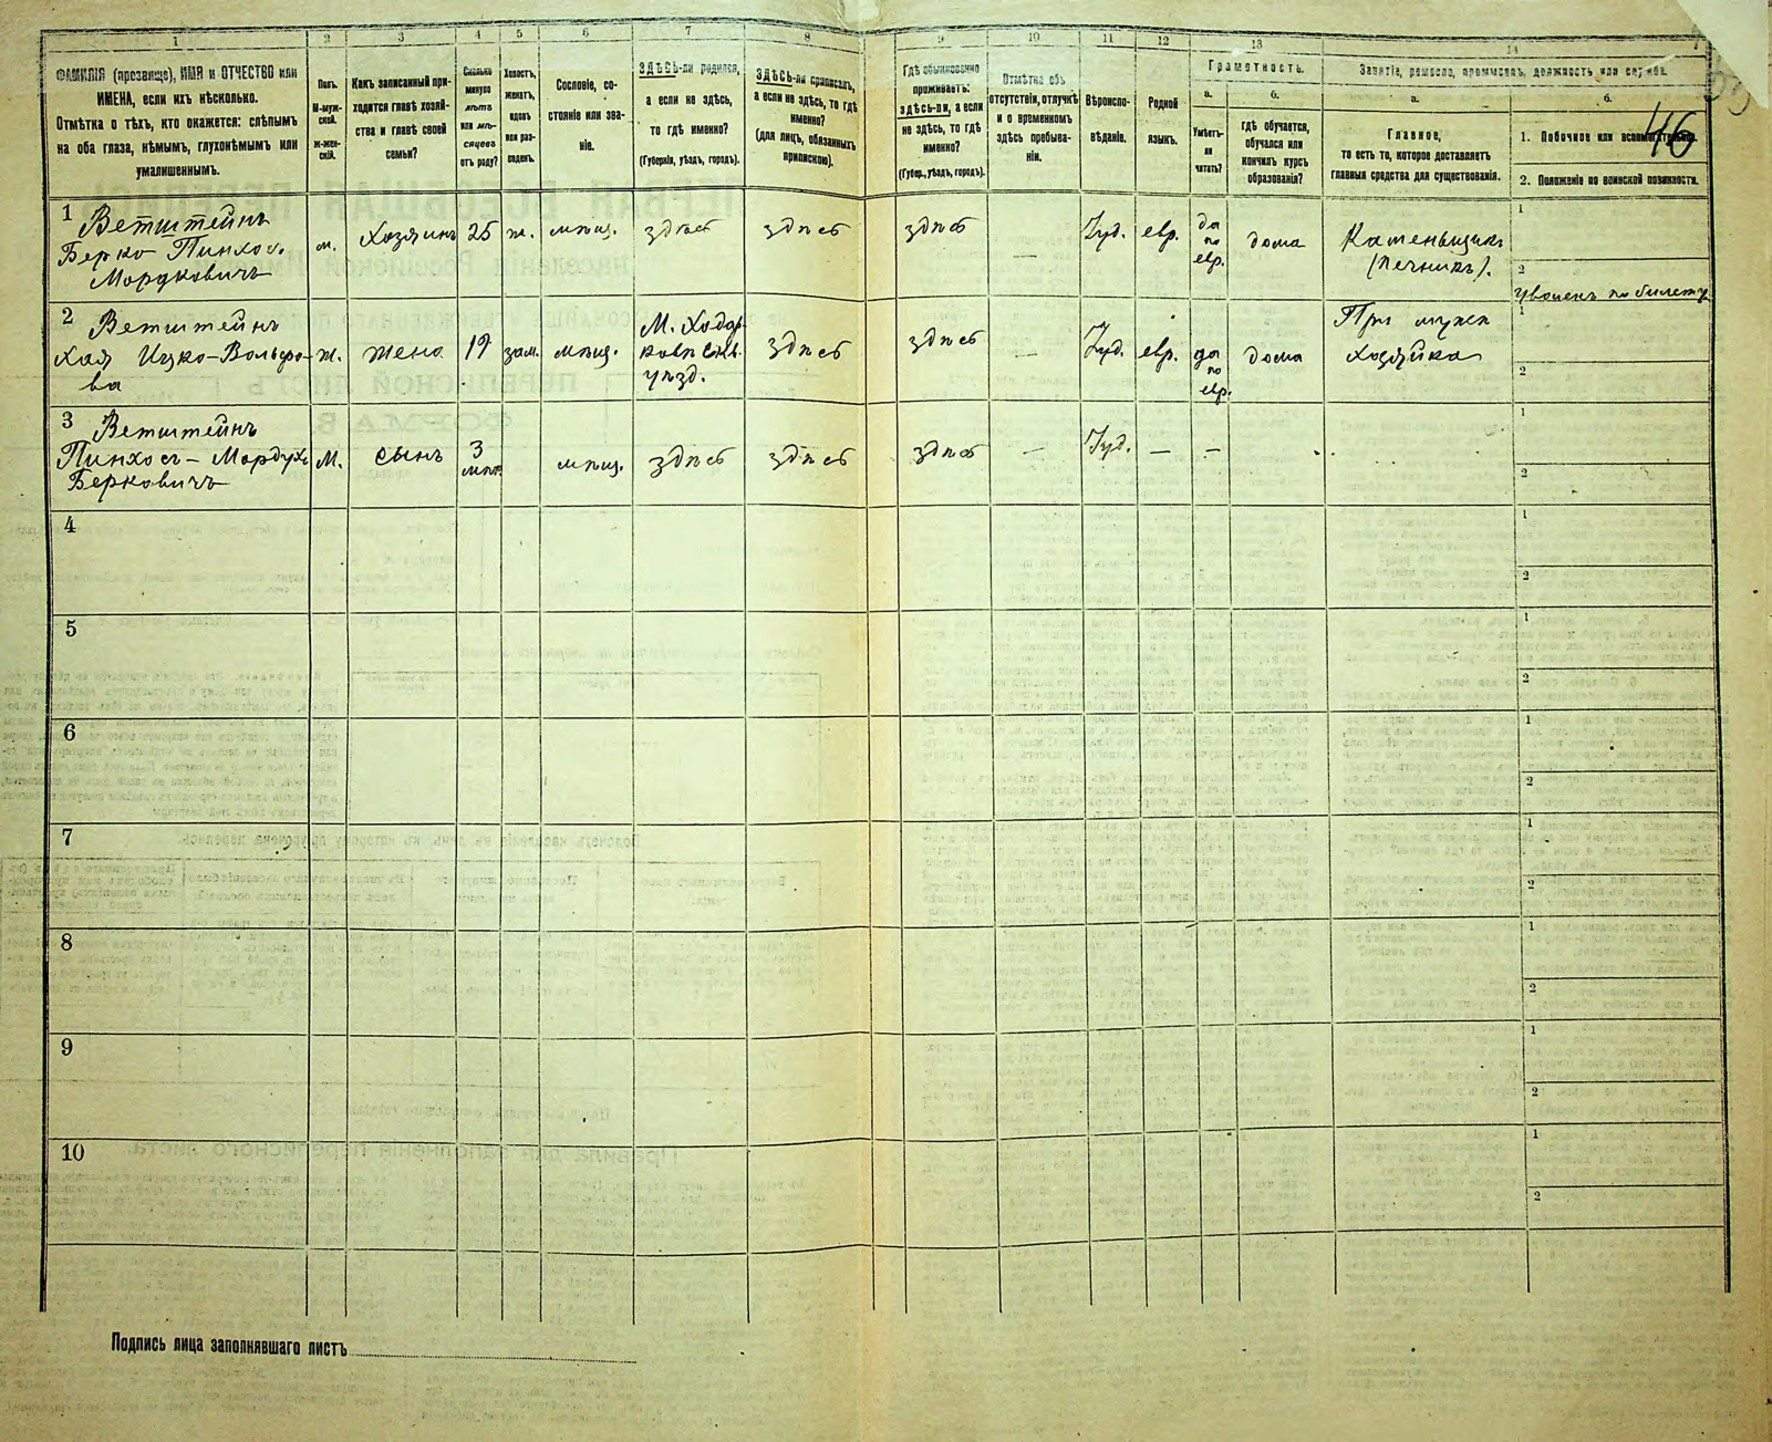 1 2 3 4 5 6 7 8 9 10 11 12 13 14
ФАМИЛІЯ (прозвище), ИМЯ и ОТЧЕСТВО или
ИМЕНА, если ихъ нѣсколько.
Отмѣтка о тѣхъ, кто окажется: слѣпымъ
на оба глаза, нѣмымъ, глухонѣмымъ или
умалишеннымъ.
Полъ.
М-муж-
ской.
Ж-жен-
скій.
Какъ записанный при-
ходится главѣ хозяй-
ства и главѣ своей
семьи?
Сколько
минуло
лѣтъ
или мѣ-
сяцевъ
отъ роду?
Холостъ,
женатъ,
вдовъ
или раз-
веденъ.
Сословіе, со-
стояніе или зва-
ніе.
ЗДѢСЬ-ли родился,
а если не здѣсь,
то гдѣ именно?
(Губернія, уѣздъ, городъ).
ЗДѢСЬ-ли приписанъ,
а если не здѣсь, то гдѣ
именно?
(для лицъ, обязанныхъ
припискою).
Гдѣ обыкновенно
проживаетъ:
здѣсь-ли, а если
не здѣсь, то гдѣ
именно?
(Губер., уѣздъ, городъ).
Отмѣтка объ
отсутствіи, отлучкѣ
и о временномъ
здѣсь пребыва-
ніи.
Вѣроиспо-
вѣданіе.
Родной
языкъ.
Грамотность.
а.
Умѣетъ-
ли
читать?
б.
гдѣ обучается,
обучался или
кончилъ курсъ
образованія?
Занятіе, ремесло, промыселъ, должность или служба.
а.
Главное,
то есть то, которое доставляетъ
главныя средства для существованія.
б.
1. Побочное или вспомогательное.
2. Положеніе по воинской повинности.
46
1 Ветштейнъ
Берко Пинхос.
Мордковичъ
м.
Хозяинъ
25
ж.
мѣщ.
здѣсь
здѣсь
здѣсь
—
Іуд.
евр.
да
по
евр.
дома
Каменьщикъ
(печникъ).
1
2
уволенъ по билету
2 Ветштейнъ
Хая Ицко-Вольфо-
ва
ж.
жена
19
зам.
мѣщ.
М. Ходор
ковъ Скв.
уѣзд.
здѣсь
здѣсь
—
Іуд.
евр.
да
по
евр.
дома
При мужѣ
хозяйка
1
2
3 Ветштейнъ
Пинхосъ-Мордухъ
Берковичъ
М.
сынъ
3
мѣс.
мѣщ.
здѣсь
здѣсь
здѣсь
—
Іуд.
—
—
1
2
4
1
2
5
1
2
6
1
2
7
1
2
8
1
2
9
1
2
10
1
2
Подпись лица заполнявшаго листъ